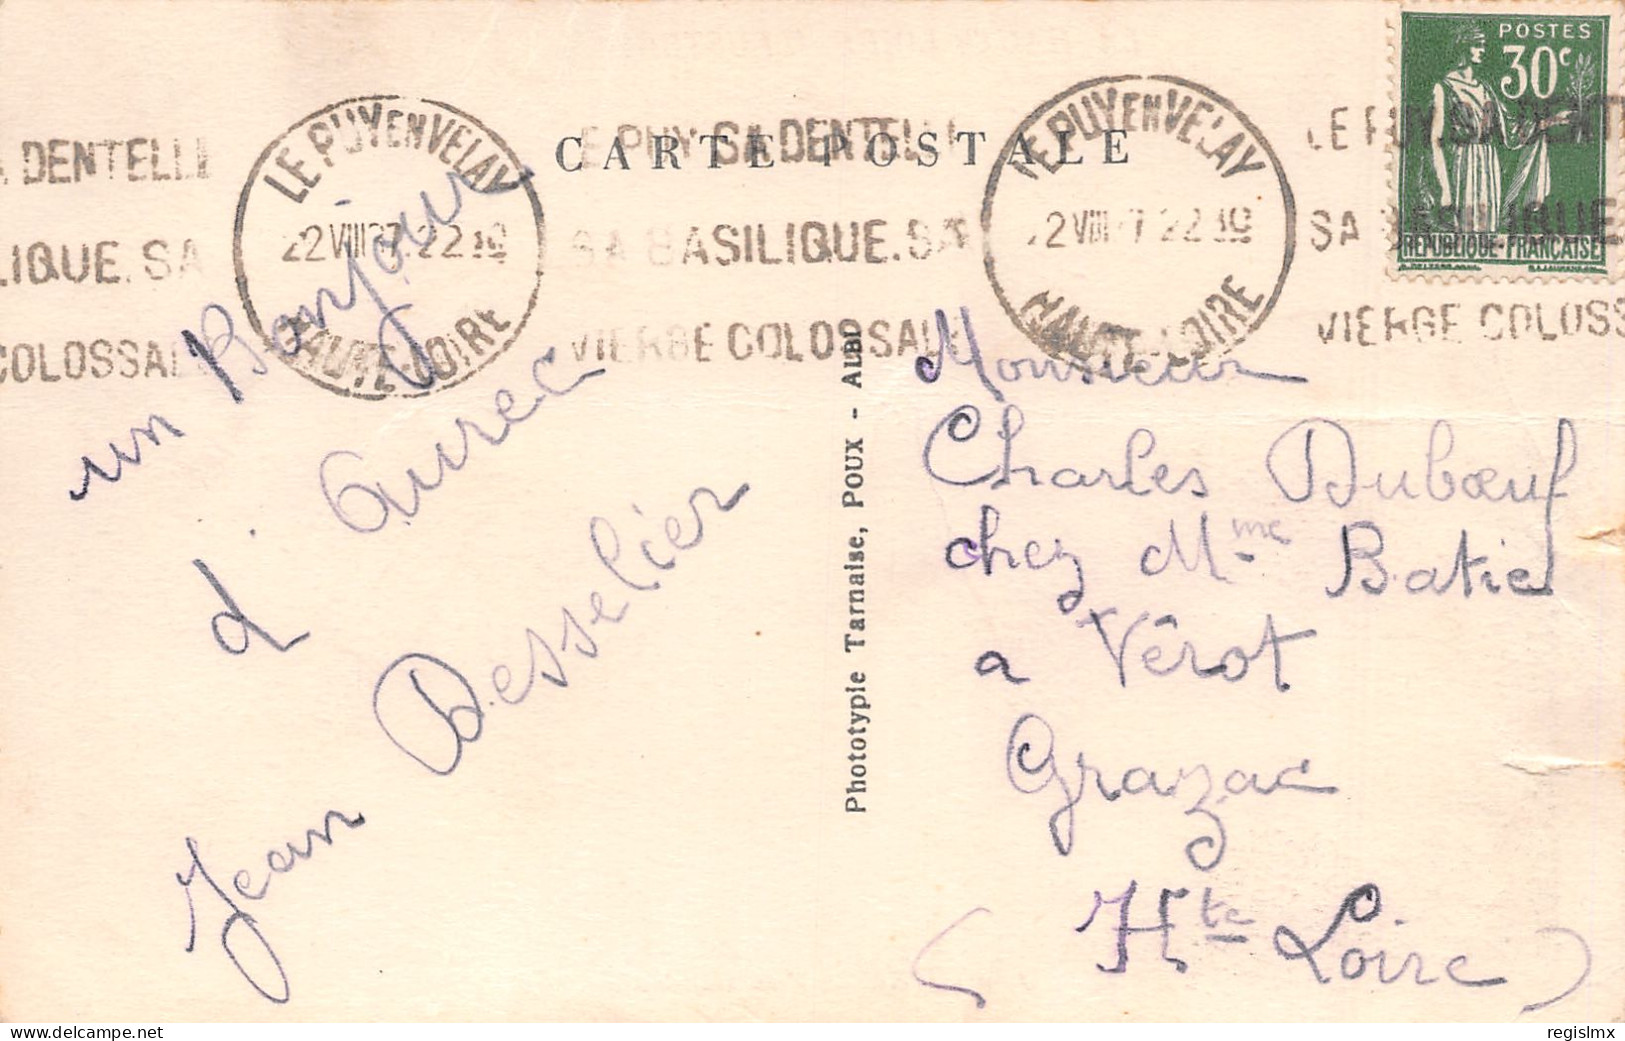 CARTE POSTALE
POSTES
30c
REPUBLIQUE-FRANÇAISE
LE PUY EN VELAY
22 VIII 37. 22 10
HAUTE-LOIRE
LE PUY. SA DENTELL
SA BASILIQUE. SA
VIERGE COLOSSALE
LE PUY EN VELAY
22 VIII 7 22 10
HAUTE-LOIRE
LE PUY. SA DENT
SA BASILIQUE
VIERGE COLOSS
A DENTELLE
LIQUE. SA
COLOSSAL
un Bonjour
d'Aurec
Jean Desselier
Phototypie Tarnaise, POUX - ALBI
Monsieur
Charles Dubœuf
chez Mme Batie
a Vérot
Grazac
(Hte Loire)
regislmx